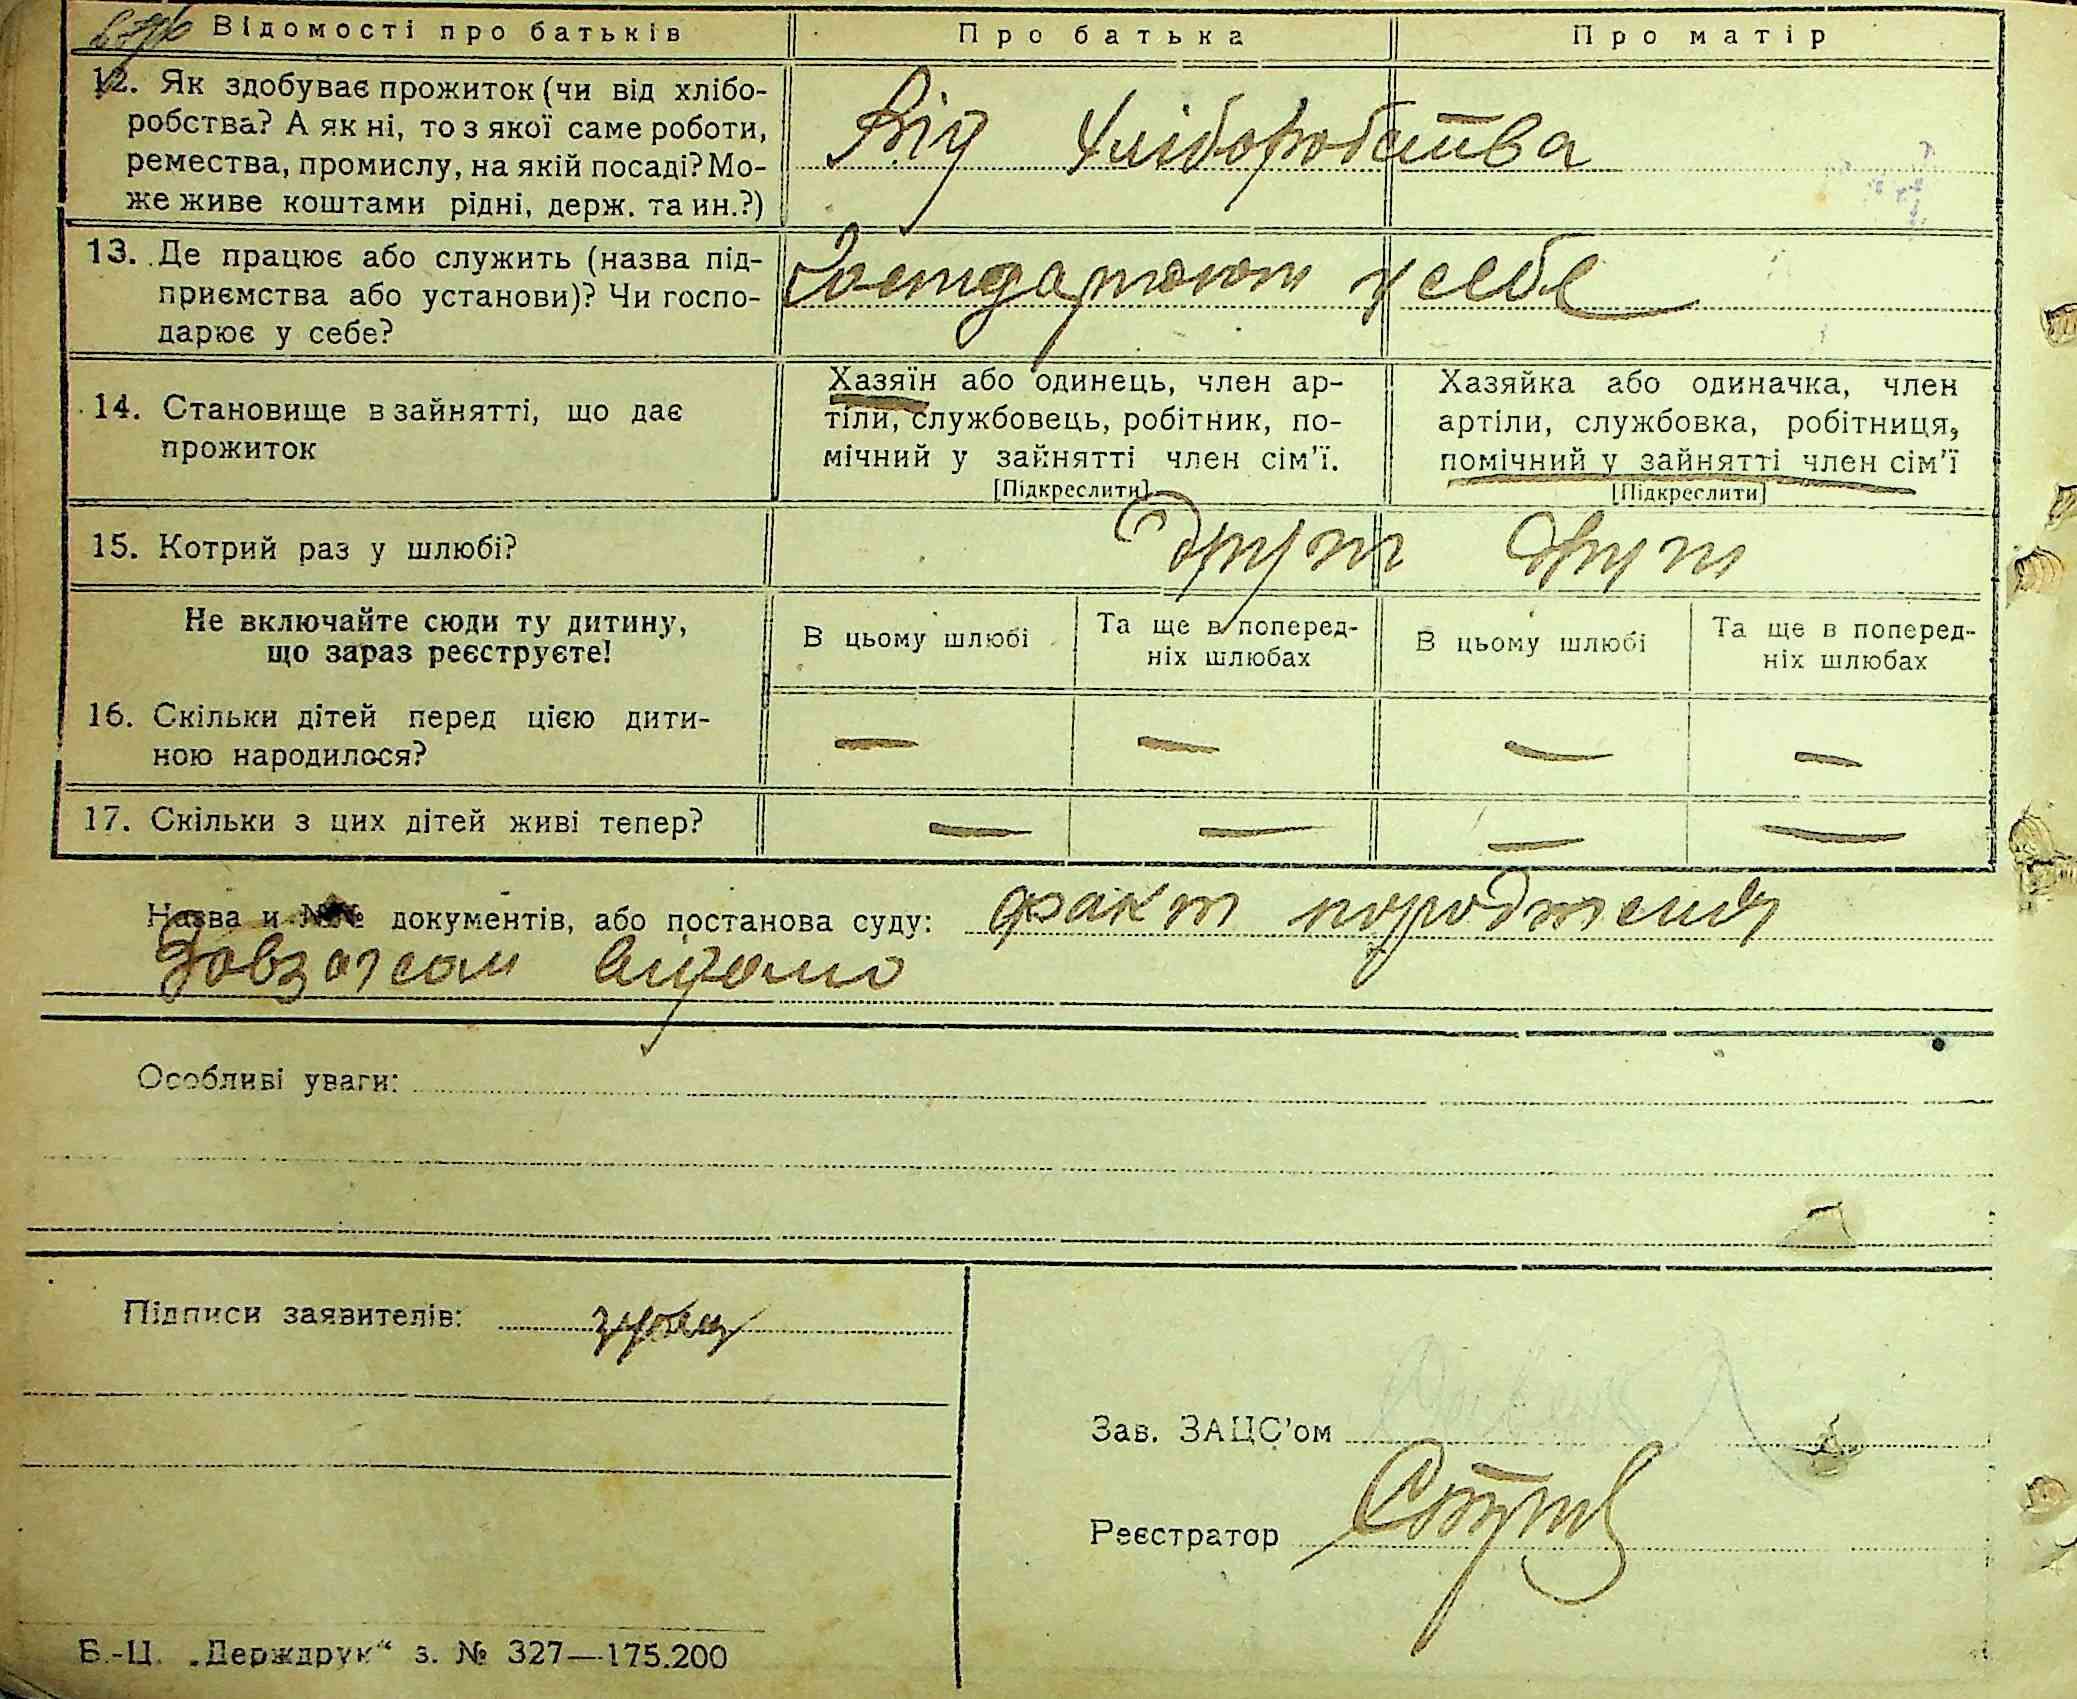 Відомості про батьків Про батька Про матір
12. Як здобуває прожиток (чи від хлібо-
робства? А як ні, то з якої саме роботи,
ремества, промислу, на якій посаді? Мо-
же живе коштами рідні, держ. та ин.?)
Від хліборобства
13. Де працює або служить (назва під-
приємства або установи)? Чи госпо-
дарює у себе?
Господарюют у себе
14. Становище в зайнятті, що дає
прожиток
Хазяїн або одинець, член ар-
тіли, службовець, робітник, по-
мічний у зайнятті член сім'ї.
[Підкреслити]
Хазяйка або одиначка, член
артіли, службовка, робітниця,
помічний у зайнятті член сім'ї
[Підкреслити]
15. Котрий раз у шлюбі?
Не включайте сюди ту дитину,
що зараз реєструєте!
В цьому шлюбі
Та ще в поперед-
ніх шлюбах
В цьому шлюбі
Та ще в поперед-
ніх шлюбах
16. Скільки дітей перед цією дити-
ною народилося?
— — — —
17. Скільки з цих дітей живі тепер?
— — — —
Назва и №№ документів, або постанова суду: факт
відомо
Особливі уваги:
Підписи заявителів:
Зав. ЗАЦС'ом
Реєстратор
Б.-Ц. „Держдрук“ з. № 327—175.200